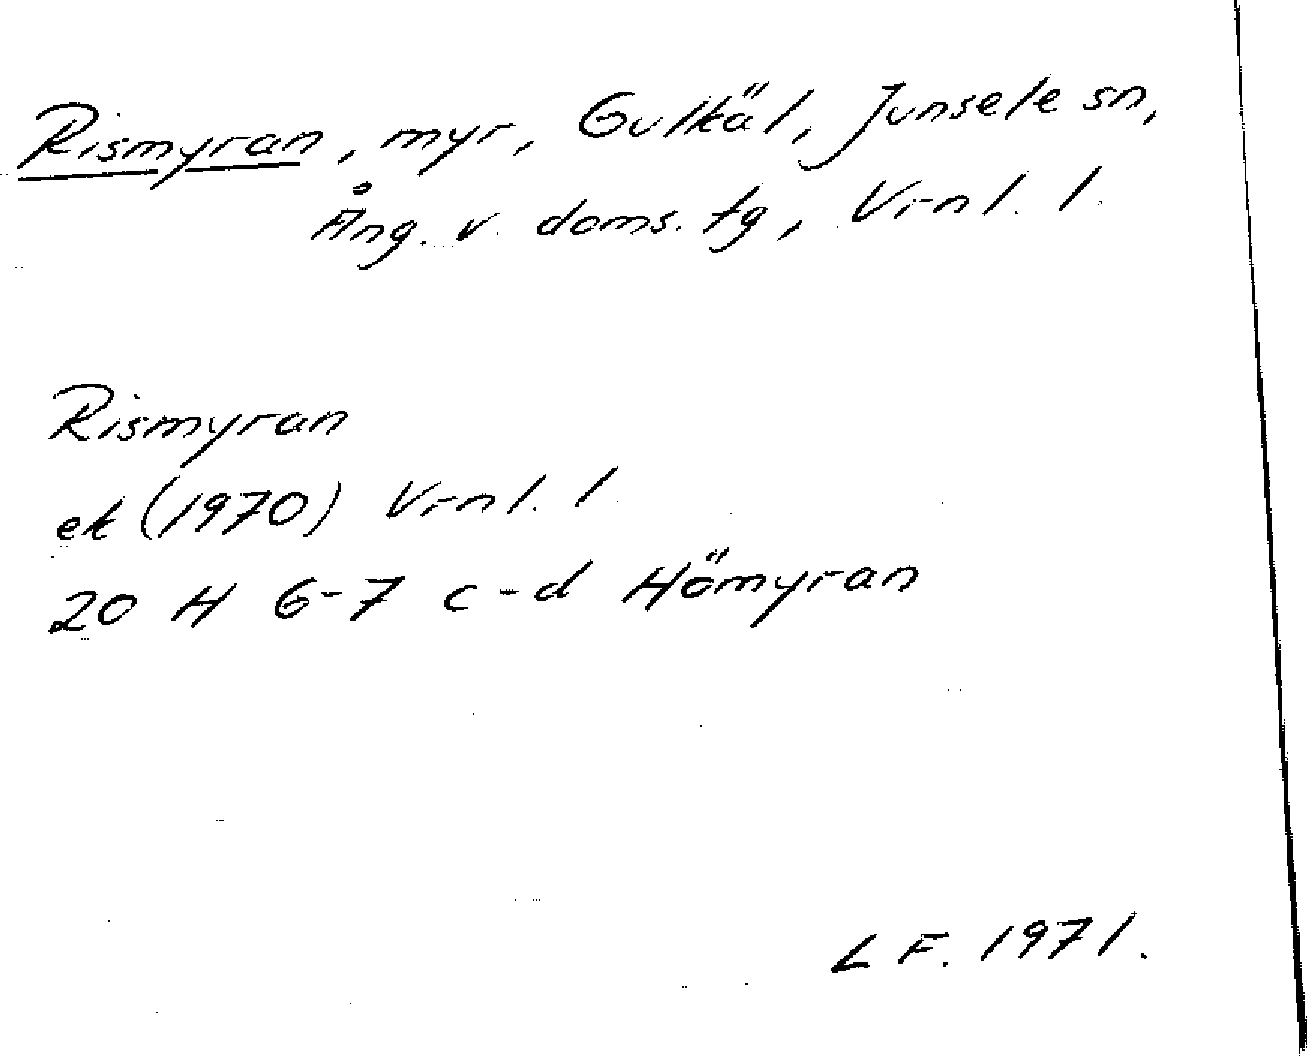 Rismyran, myr, Gulkäl, Junsele sn,
Ång. v. doms. tg, Vrnl. l.
Rismyran
ek (1970) Vrnl. l
20 H 6-7 c-d Hömyran
L F. 1971.